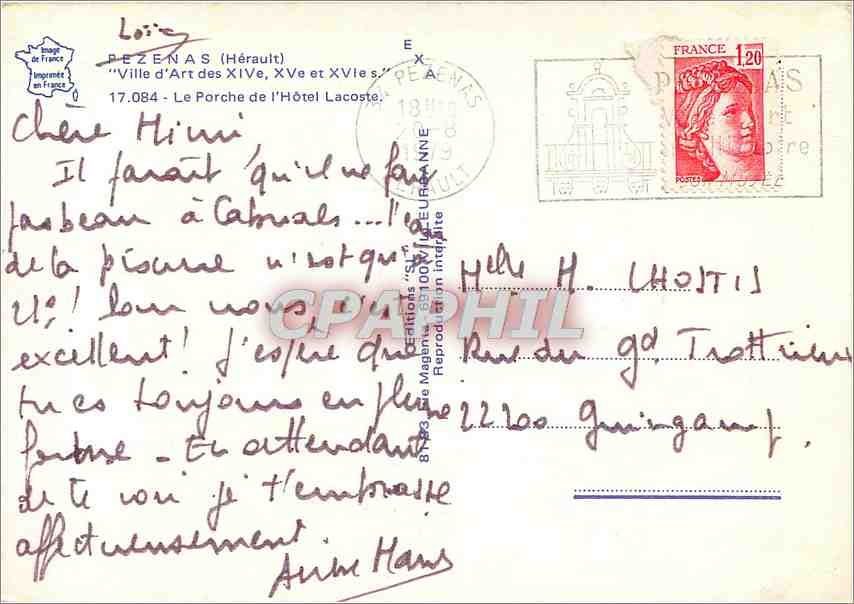 Loïc
Image
de France
Imprimée
en France
PEZENAS (Hérault)
"Ville d'Art des XIVe, XVe et XVIe s."
17.084 - Le Porche de l'Hôtel Lacoste.
EXA
34 PEZENAS
18H
1979
HERAULT
FRANCE
1,20
POSTES
Chère Mimi,
Il paraît qu'il ne fait
pas beau à Cabrials... l'eau
de la piscine n'est qu'à
21°! Pour nous, c'est
excellent! J'espère que
tu es toujours en pleine
forme - En attendant
de te voir je t'embrasse
affectueusement.
Editions "SL" - VILLEURBANNE
81-83, rue Magenta - 69100
Reproduction interdite
CPAPHIL
Melle M. LHOSTIS
Rue du gd Trotrieux
22200 Guingamp.